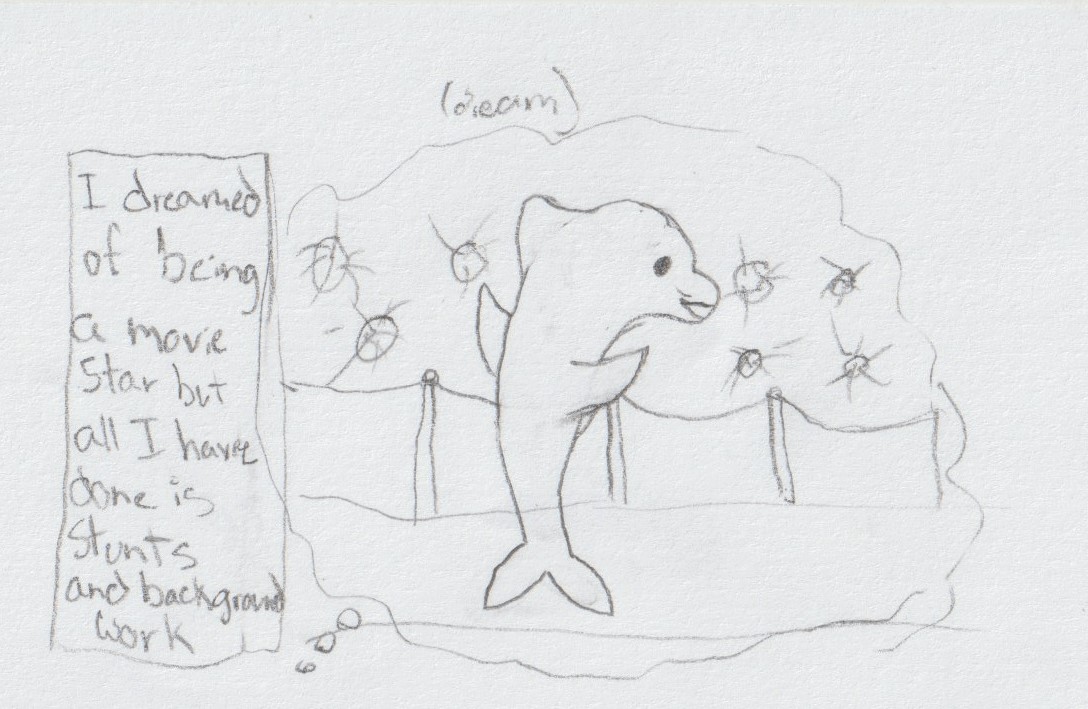 (dream)
I dreamed
of being
a movie
Star but
all I have
done is
stunts
and background
work